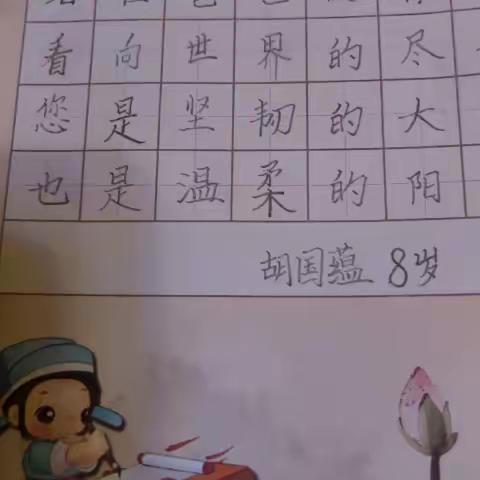 看向世界的尽
您是坚韧的大
也是温柔的阳
胡国蕴 8岁